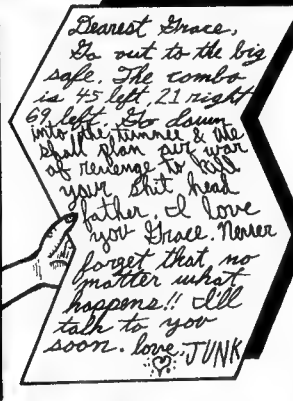 Dearest Grace,
Go out to the big
safe. The combo
is 45 left, 21 right
69 left. Go down
into the tunnel & We
shall plan our war
of revenge to kill
your shit head
father. I love
you Grace. Never
forget that no
matter what
happens!! I'll
talk to you
soon. love, JUNK